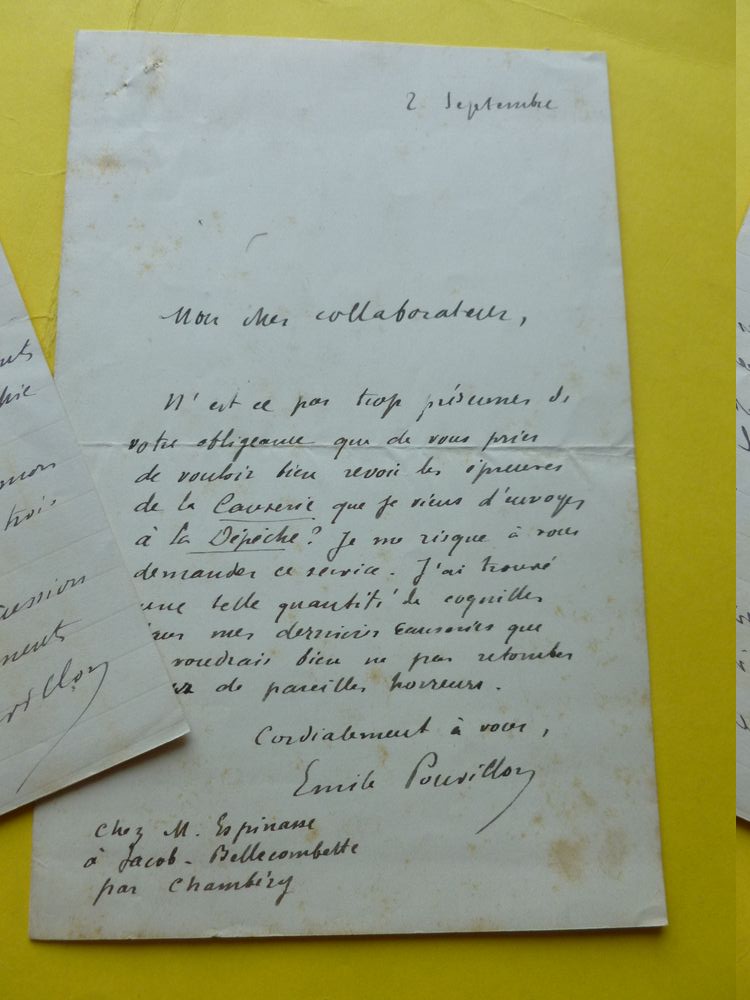 2 Septembre
Mon cher collaborateur,
N'est ce pas trop présumer de
votre obligeance que de vous prier
de vouloir bien revoir les épreuves
de la Causerie que je viens d'envoyer
à la Dépêche? Je me risque à vous
demander ce service. J'ai trouvé
une telle quantité de coquilles
mes dernières causeries que
voudrais bien ne pas retomber
de pareilles horreurs.
Cordialement à vous,
Emile Pouvillon
Chez M. Espinasse
à Jacob-Bellecombette
par Chambéry
trois